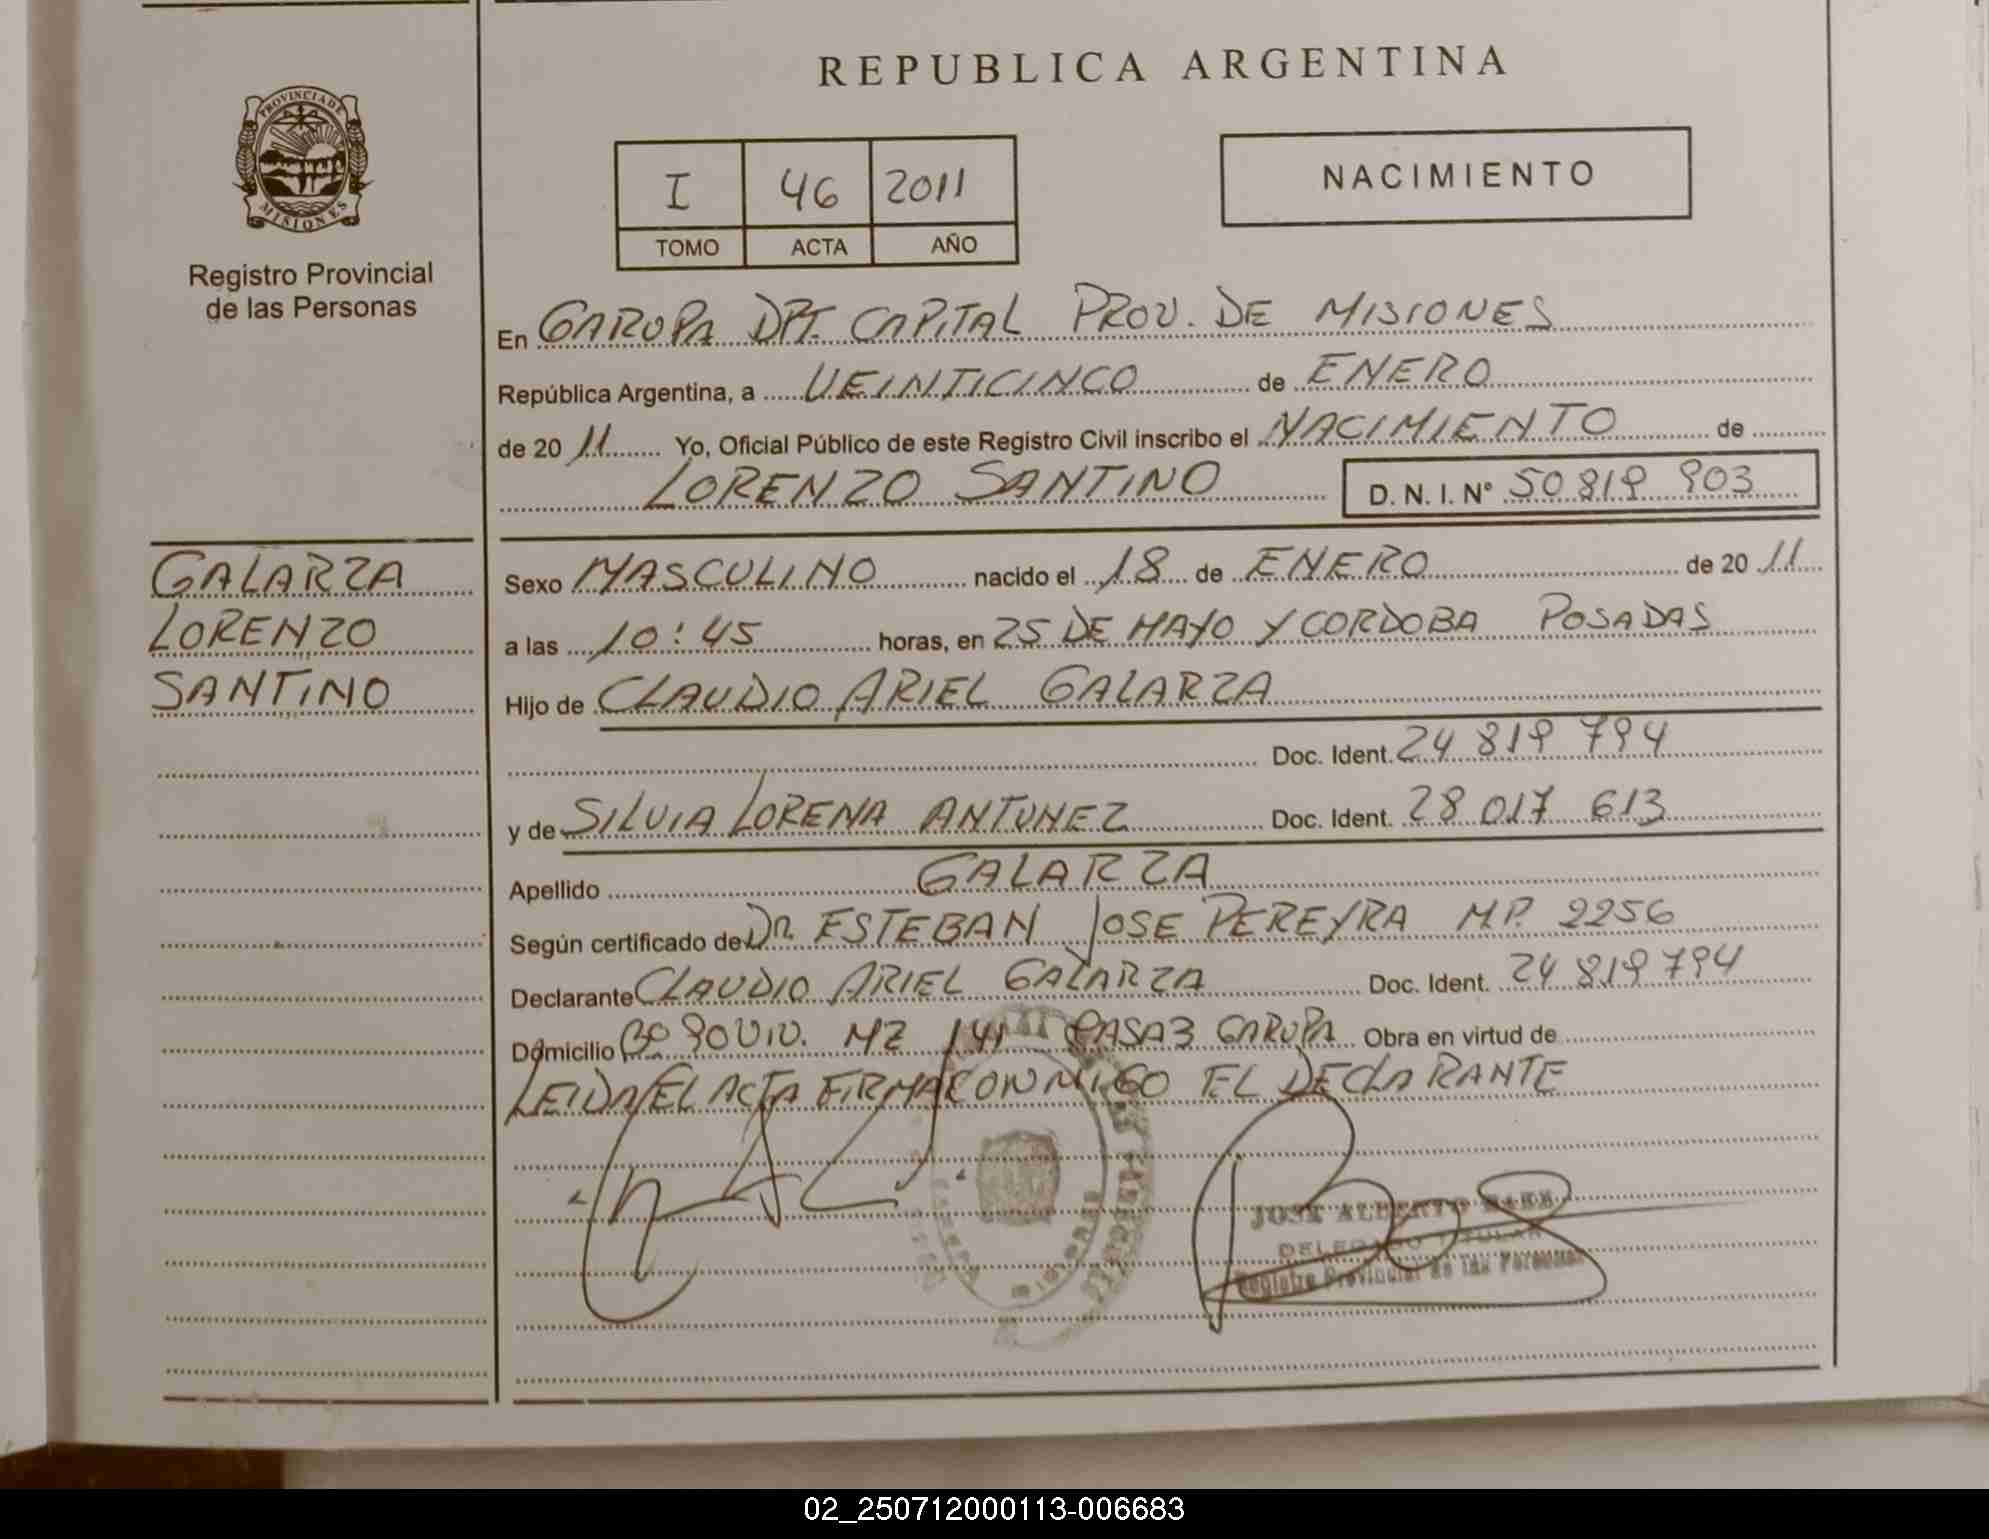 REPUBLICA ARGENTINA
PROVINCIA DE
MISIONES
Registro Provincial
de las Personas
I 46 2011
TOMO ACTA AÑO
NACIMIENTO
En GARUPA DPT. CAPITAL PROV. DE MISIONES
República Argentina, a VEINTICINCO de ENERO
de 20 11 Yo, Oficial Público de este Registro Civil inscribo el NACIMIENTO de
LORENZO SANTINO D. N. I. Nº 50 819 903
GALARZA
LORENZO
SANTINO
Sexo MASCULINO nacido el 18 de ENERO de 20 11
a las 10:45 horas, en 25 DE MAYO Y CORDOBA POSADAS
Hijo de CLAUDIO ARIEL GALARZA
Doc. Ident. 24 819 794
y de SILVIA LORENA ANTUNEZ Doc. Ident. 28 017 613
Apellido GALARZA
Según certificado de Dr. ESTEBAN JOSE PEREYRA M.P. 2256
Declarante CLAUDIO ARIEL GALARZA Doc. Ident. 24 819 794
Domicilio Bº 90 VIV. MZ 141 CASA 3 GARUPA Obra en virtud de
LEIDA EL ACTA FIRMA CONMIGO EL DECLARANTE
JOSE ALBERTO
DELEGADO TITULAR
Registro Provincial de las Personas
MISIONES
02_250712000113-006683